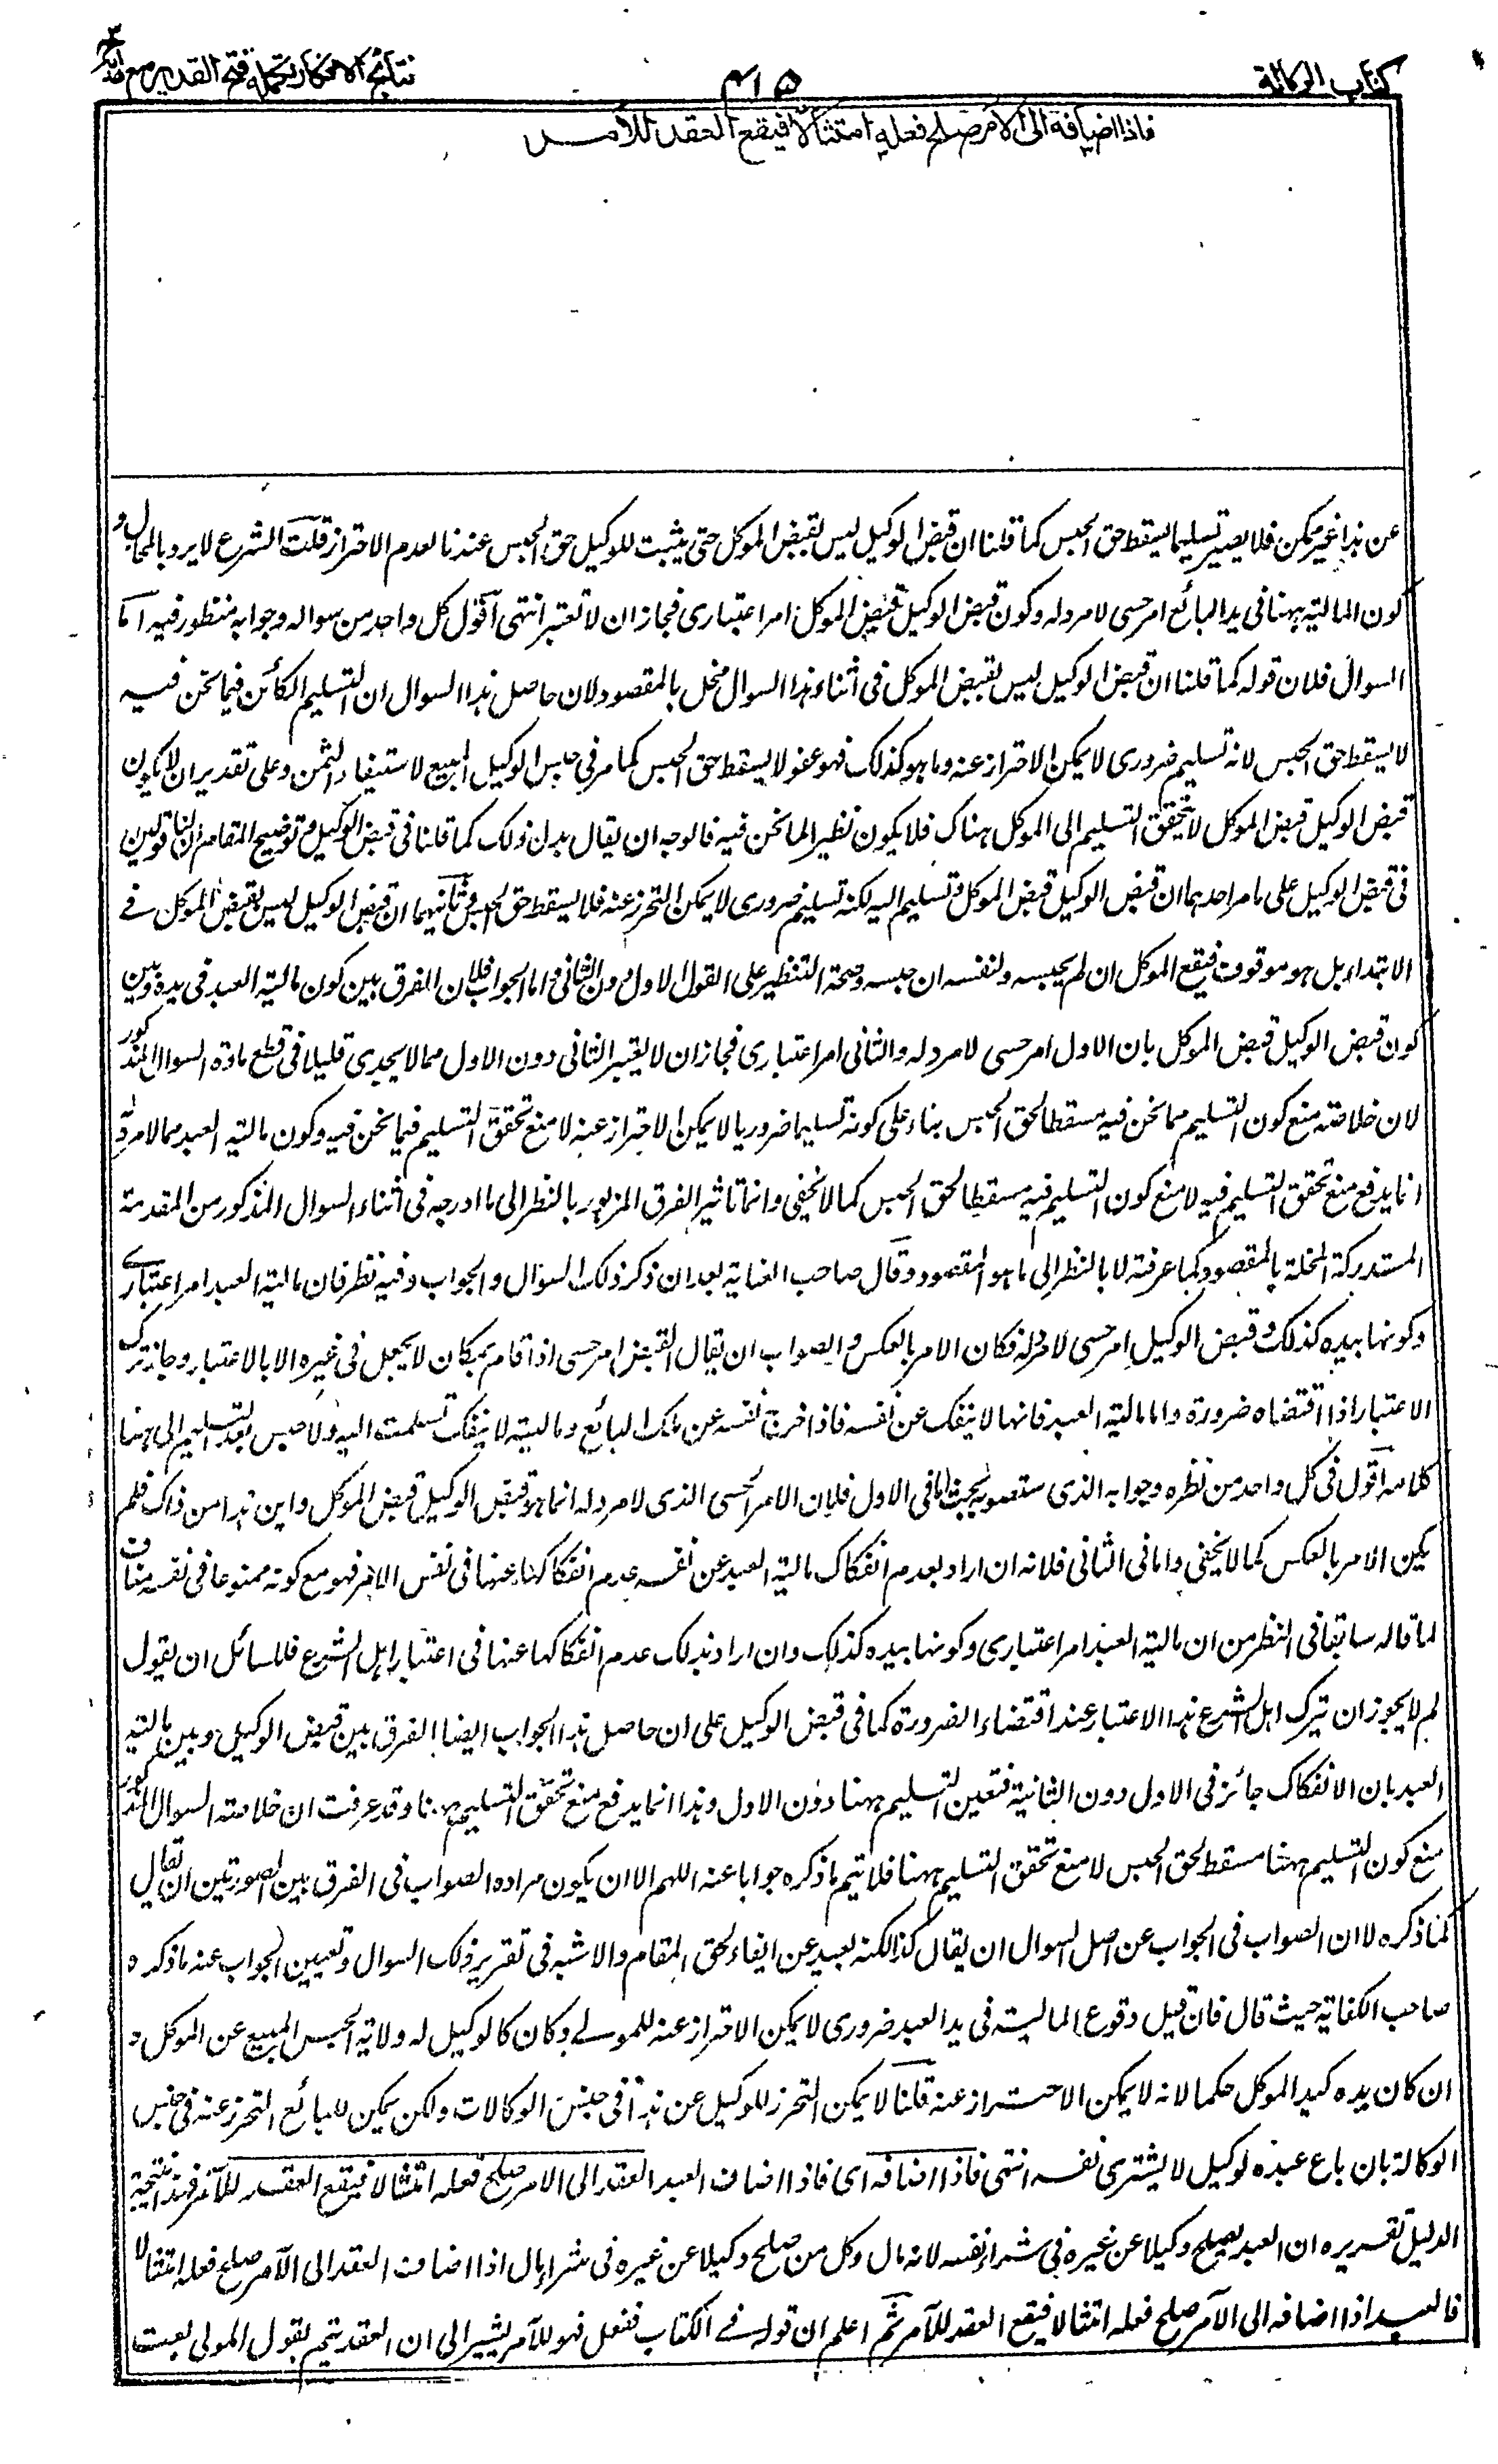 كتاب الوكالة
٤١٥
نتائج الافكار تكملة فتح القدير مع
فاذا اضافه الى الآمر صلح فعله امتثالا فيقع العقد للآمر
عن هذا غير ممكن فلا يصير تسليما ليسقط حق الحبس كما قلنا ان قبض الوكيل ليس بقبض الموكل حتى يثبت للوكيل حق الحبس عندنا لعدم الاحتراز قلت الشرع لا يرد بالمحال و
كون المالية ههنا فى يد البائع امر حسى لا مرد له وكون قبض الوكيل قبض الموكل امر اعتبارى فجاز ان لا تعتبر انتهى اقول كل واحد من سواله وجوابه منظور فيه اما
السوال فلان قوله كما قلنا ان قبض الوكيل ليس بقبض الموكل فى اثناء هذا السوال مخل بالمقصود لان حاصل هذا السوال ان التسليم الكائن فيما نحن فيه
لا يسقط حق الحبس لانه تسليم ضرورى لا يمكن الاحتراز عنه وما هو كذلك فهو عفو لا يسقط حق الحبس كما مر فى حبس الوكيل المبيع لاستيفاء الثمن وعلى تقدير ان لا يكون
قبض الوكيل قبض الموكل لا يتحقق التسليم الى الموكل هناك فلا يكون نظير الما نحن فيه فالوجه ان يقال بدل ذلك كما قلنا فى قبض الوكيل وتوضيح المقام ان لنا قولين
فى قبض الوكيل على ما مر احدهما ان قبض الوكيل قبض الموكل وتسليم اليه لكنه تسليم ضرورى لا يمكن التحرز عنه فلا يسقط حق الحبس وثانيهما ان قبض الوكيل ليس بقبض الموكل فے
الابتداء بل هو موقوف فيقع الموكل ان لم يحبسه ولنفسه ان حبسه وصحة التنظير على القول الاول دون الثانى واما الجواب فلان الفرق بين كون مالية العبد فى يده وبين
كون قبض الوكيل قبض الموكل بان الاول امر حسى لا مرد له والثانى امر اعتبارى فجاز ان لا يعتبر الثانى دون الاول مما لا يجدى قليلا فى قطع مادة السوال المذكور
لان خلاصته منع كون التسليم مما نحن فيه مسقطا لحق الحبس بناء على كونه تسليما ضروريا لا يمكن الاحتراز عنه لا منع تحقق التسليم فيما نحن فيه وكون مالية العبد مما لا مرد له
انما يدفع منع تحقق التسليم فيه لا منع كون التسليم فيه مسقطا لحق الحبس كما لا يخفى وانما تاثير الفرق المزبور بالنظر الى ما ادرجه فى اثناء السوال المذكور من المقدمة
المستدركة المخلة بالمقصود كما عرفته لا بالنظر الى ما هو المقصود وقال صاحب العناية بعد ان ذكر ذلك السوال والجواب وفيه نظر فان مالية العبد امر اعتبارے
وكونها بيده كذلك وقبض الوكيل امر حسى لا مرد له فكان الامر بالعكس والصواب ان يقال القبض امر حسى اذا قام بمكان لا يجعل فى غيره الا بالاعتبار وجاز ترك
الاعتبار اذا اقتضاه ضرورة واما مالية العبد فانها لا ينفك عن نفسه فاذا خرج نفسه عن ملك البائع وماليته لا ينفك تسلمت اليه ولا حبس بعد التسليم الى هنا
كلامه اقول فى كل واحد من نظره وجوابه الذى ستصوبه بحث اما فى الاول فلان الامر الحسى الذى لا مرد له انما هو قبض الوكيل قبض الموكل واين هذا من ذاك فلم
يكن الامر بالعكس كما لا يخفى واما فى الثانى فلانه ان اراد بعدم انفكاك مالية العبد عن نفسه عدم انفكاكها عنها فى نفس الامر فهو مع كونه ممنوعا فى نفسه مناف
لما قاله سابقا فى النظر من ان مالية العبد امر اعتبارى وكونها بيده كذلك وان اراد بذلك عدم انفكاكها عنها فى اعتبار اهل الشرع فللسائل ان يقول
لم لا يجوز ان يترك اهل الشرع هذا الاعتبار عند اقتضاء الضرورة كما فى قبض الوكيل على ان حاصل هذا الجواب ايضا الفرق بين قبض الوكيل وبين مالية
العبد بان الانفكاك جائز فى الاول دون الثانية فتعين التسليم ههنا دون الاول وهذا انما يدفع منع تحقق التسليم ههنا وقد عرفت ان خلاصة السوال المذكور
منع كون التسليم ههنا مسقط لحق الحبس لا منع تحقق التسليم ههنا فلا يتم ما ذكره جوابا عنه اللهم الا ان يكون مراده الصواب فى الفرق بين الصورتين ان يقال
كما ذكره لا ان الصواب فى الجواب عن اصل السوال ان يقال كذا لكنه بعيد عن ايفاء لحق المقام والاشبه فى تقرير ذلك السوال وتعيين الجواب عنه ما ذكره
صاحب الكفاية حيث قال فان قيل وقوع المالية فى يد العبد ضرورى لا يمكن الاحتراز عنه للمولے وكان كالوكيل له ولاية الحبس المبيع عن الموكل و
ان كان يده كيد الموكل حكما لانه لا يمكن الاحتراز عنه قلنا لا يمكن التحرز للوكيل عن هذا فى جنس الوكالات ولكن يمكن للبائع التحرز عنه فى جنس
الوكالة بان باع عبده لوكيل لا يشترى نفسه انتهى فاذا اضافه اى فاذا اضاف العبد العقد الى الآمر صلح فعله امتثالا فيقع العقد للآمر هذا نتيجة
الدليل تقريره ان العبد يصلح وكيلا عن غيره فى شراء نفسه لانه مال وكل من صلح وكيلا عن غيره فى شراء مال اذا اضاف العقد الى الآمر صلح فعله امتثالا
فالعبد اذا اضافه الى الآمر صلح فعله امتثالا فيقع العقد للآمر ثم اعلم ان قوله فے الكتاب ففعل فهو للآمر يشير الى ان العقد يتم بقول المولى بعت